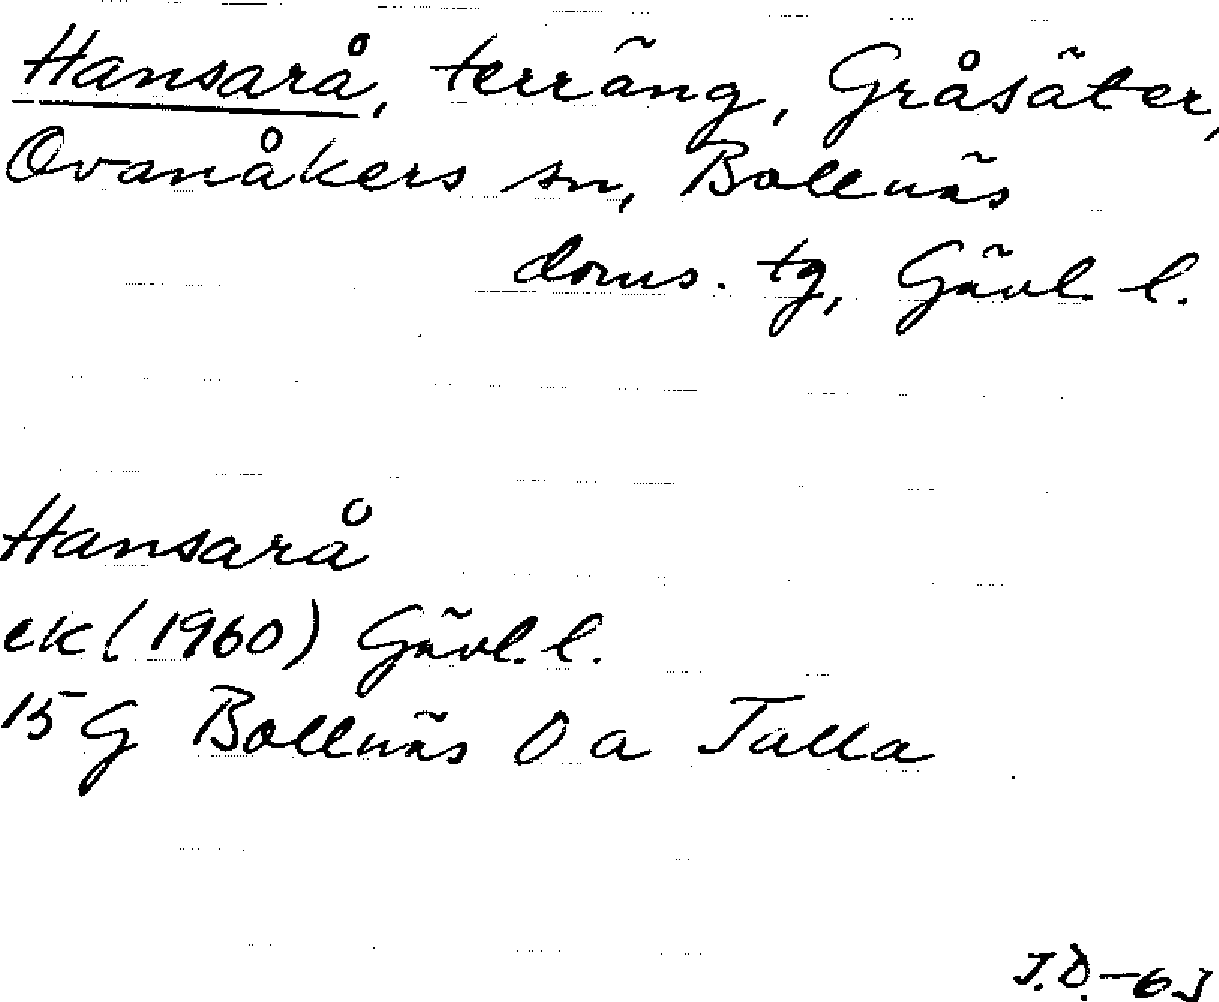 Hansarå, terräng, Gråsäter,
Ovanåkers sn, Bollnäs
doms. tg, Gävl. l.
Hansarå
ek (1960) Gävl. l.
15 G Bollnäs 0 a Talla